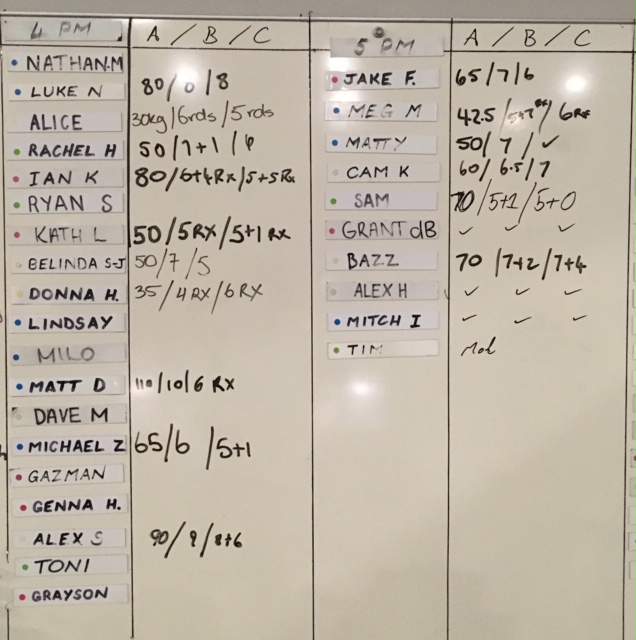 4 PM A / B / C
NATHAN.M
LUKE N 80/0/8
ALICE 30kg/6rds/5rds
RACHEL H 50/7+1/6
IAN K 80/6+4Rx/5+5Rx
RYAN S
KATH L 50/5RX/5+1 RX
BELINDA S-J 50/7/5
DONNA H. 35/4RX/6RX
LINDSAY
MILO
MATT D 110/10/6 RX
DAVE M
MICHAEL Z 65/6/5+1
GAZMAN
GENNA H.
ALEX S 90/9/8+6
TONI
GRAYSON
5 PM A / B / C
JAKE F. 65/7/6
MEG M 42.5/ /6Rx
MATTY 50/7/✓
CAM K 60/6.5/7
SAM 70/5+1/5+0
GRANT dB ✓ ✓ ✓
BAZZ 70/7+2/7+4
ALEX H ✓ ✓ ✓
MITCH I ✓ ✓ ✓
TIM